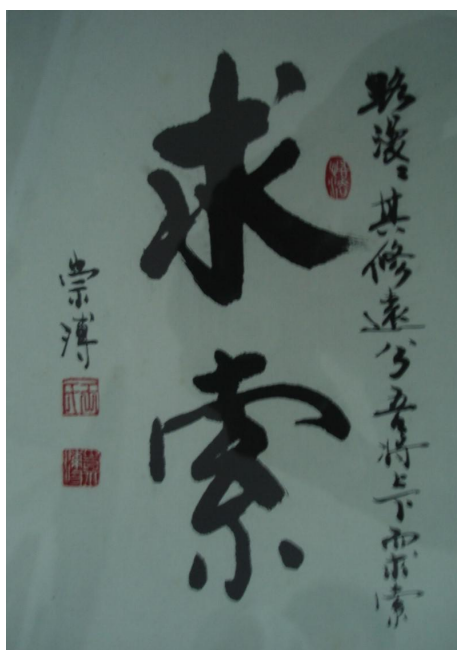 路漫〻其修遠兮吾将上下而求索
求索
崇溥